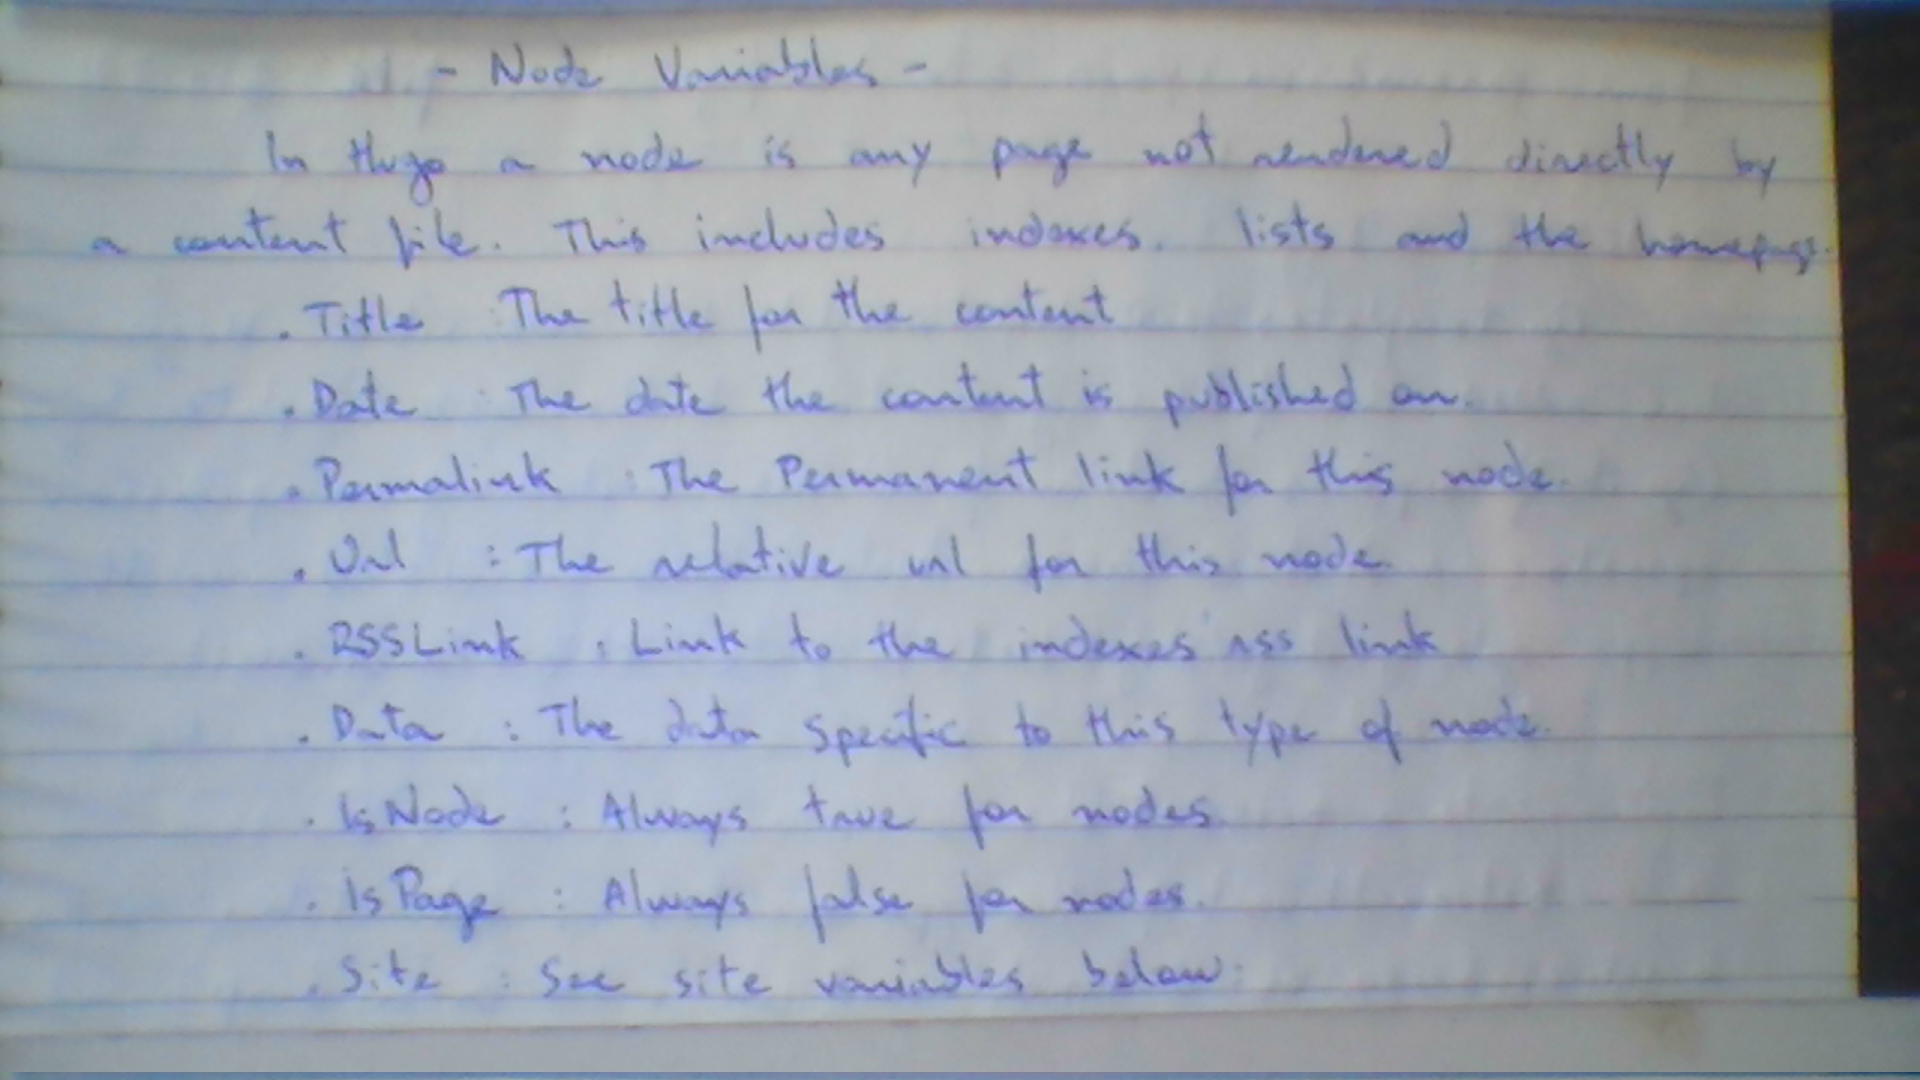 - Node Variables -
In Hugo a node is any page not rendered directly by
a content file. This includes indexes. lists and the homepage.
. Title : The title for the content
. Date : The date the content is published on.
. Permalink : The Permanent link for this node.
. Url : The relative url for this node.
. RSSLink : Link to the indexes' rss link
. Data : The data specific to this type of node.
. IsNode : Always true for nodes.
. IsPage : Always false for nodes.
. Site : See site variables below: